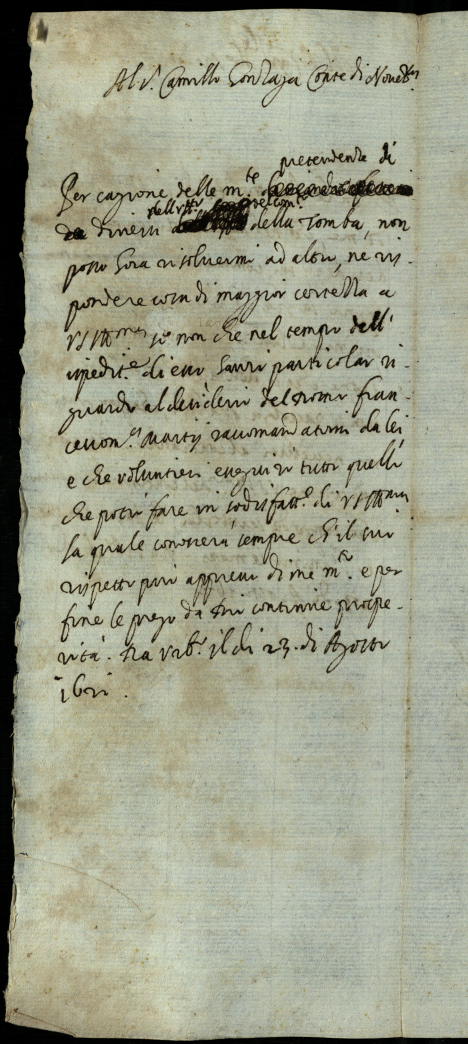 Al S.r Camillo Gonzaga Conte di Novell.ra
pretendente di
Per cagione delle m.te
dell'uff.o
diversi della Tomba, non
posso hora risolvermi ad altro, ne ris-
pondere con di maggior certezza a
VS Ill.ma se non che nel tempo dell'
ispedit.e di esso havrò particolar ri-
guardo al desiderio del Nomo fran-
cescom.a Martij raccomandatomi da lei
e che volontieri eseguirò tutto quello
che potrò fare in sodisfatt.e di VS Ill.ma
la quale conoscerà sempre ch'il suo
rispetto può appresso di me m.to e per
fine le prego da Dio continue prospe-
rità. Da Urb.o il dì 23. di Agosto
1621.